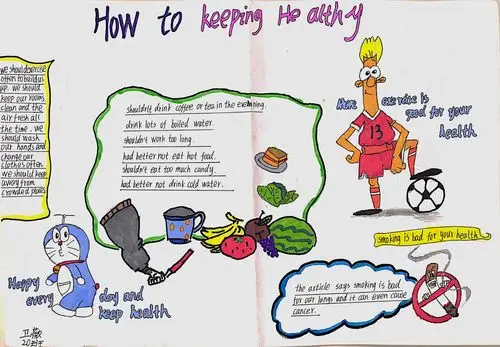 How to keeping Healthy
we should exercise
often to build us
up. we should
keep our rooms
clean and the
air fresh all
the time. we
should wash
our hands and
change our
clothes often.
we should keep
away from
crowded places
shouldn't drink coffee or tea in the evening.
drink lots of boiled water.
shouldn't work too long.
had better not eat hot food.
shouldn't eat too much candy.
had better not drink cold water.
More exercise is
good for your
health
13
smoking is bad for your health
the article says smoking is bad
for our lungs and it can even cause
cancer.
Happy
every day and
keep health